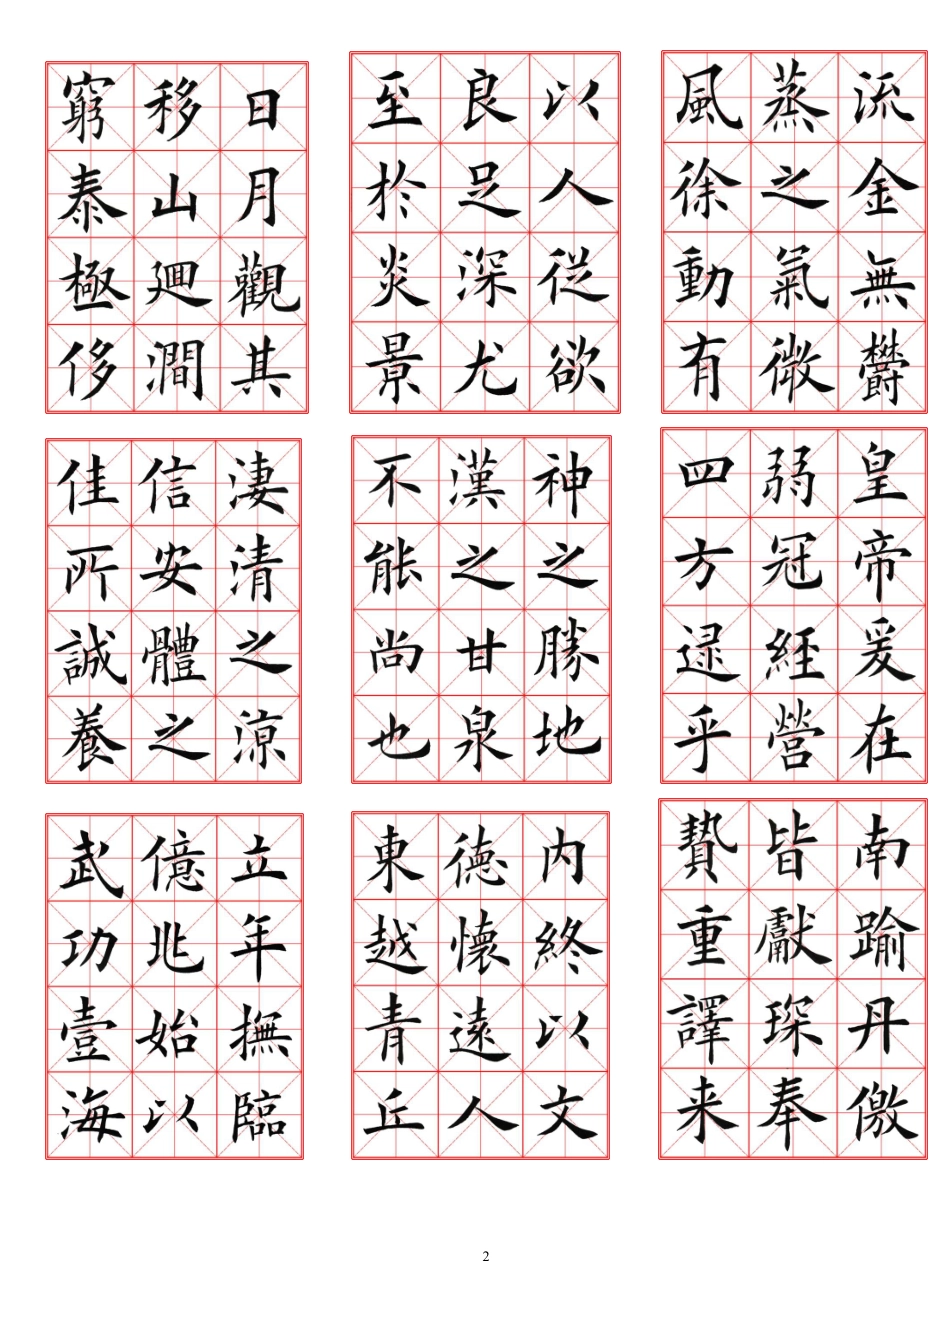 日月觀其
移山廻澗
窮泰極侈
以人從欲
良足深尤
至於炎景
流金無欝
蒸之氣微
風徐動有
淒清之涼
信安體之
佳所誠養
神之勝地
漢之甘泉
不能尚也
皇帝爰在
弱冠經營
四方逮乎
立年撫臨
億兆始以
武功壹海
内終以文
德懷遠人
東越青丘
南踰丹儌
皆獻琛奉
贄重譯来
2